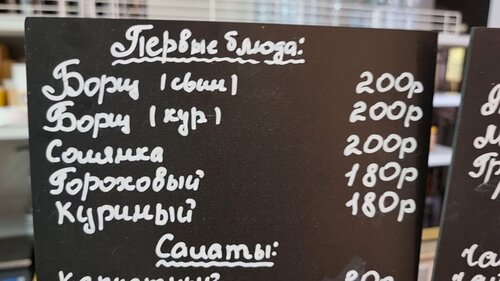 Первые блюда:
Борщ (свин) 200р
Борщ (кур) 200р
Солянка 200р
Гороховый 180р
Куриный 180р
Салаты:
80р